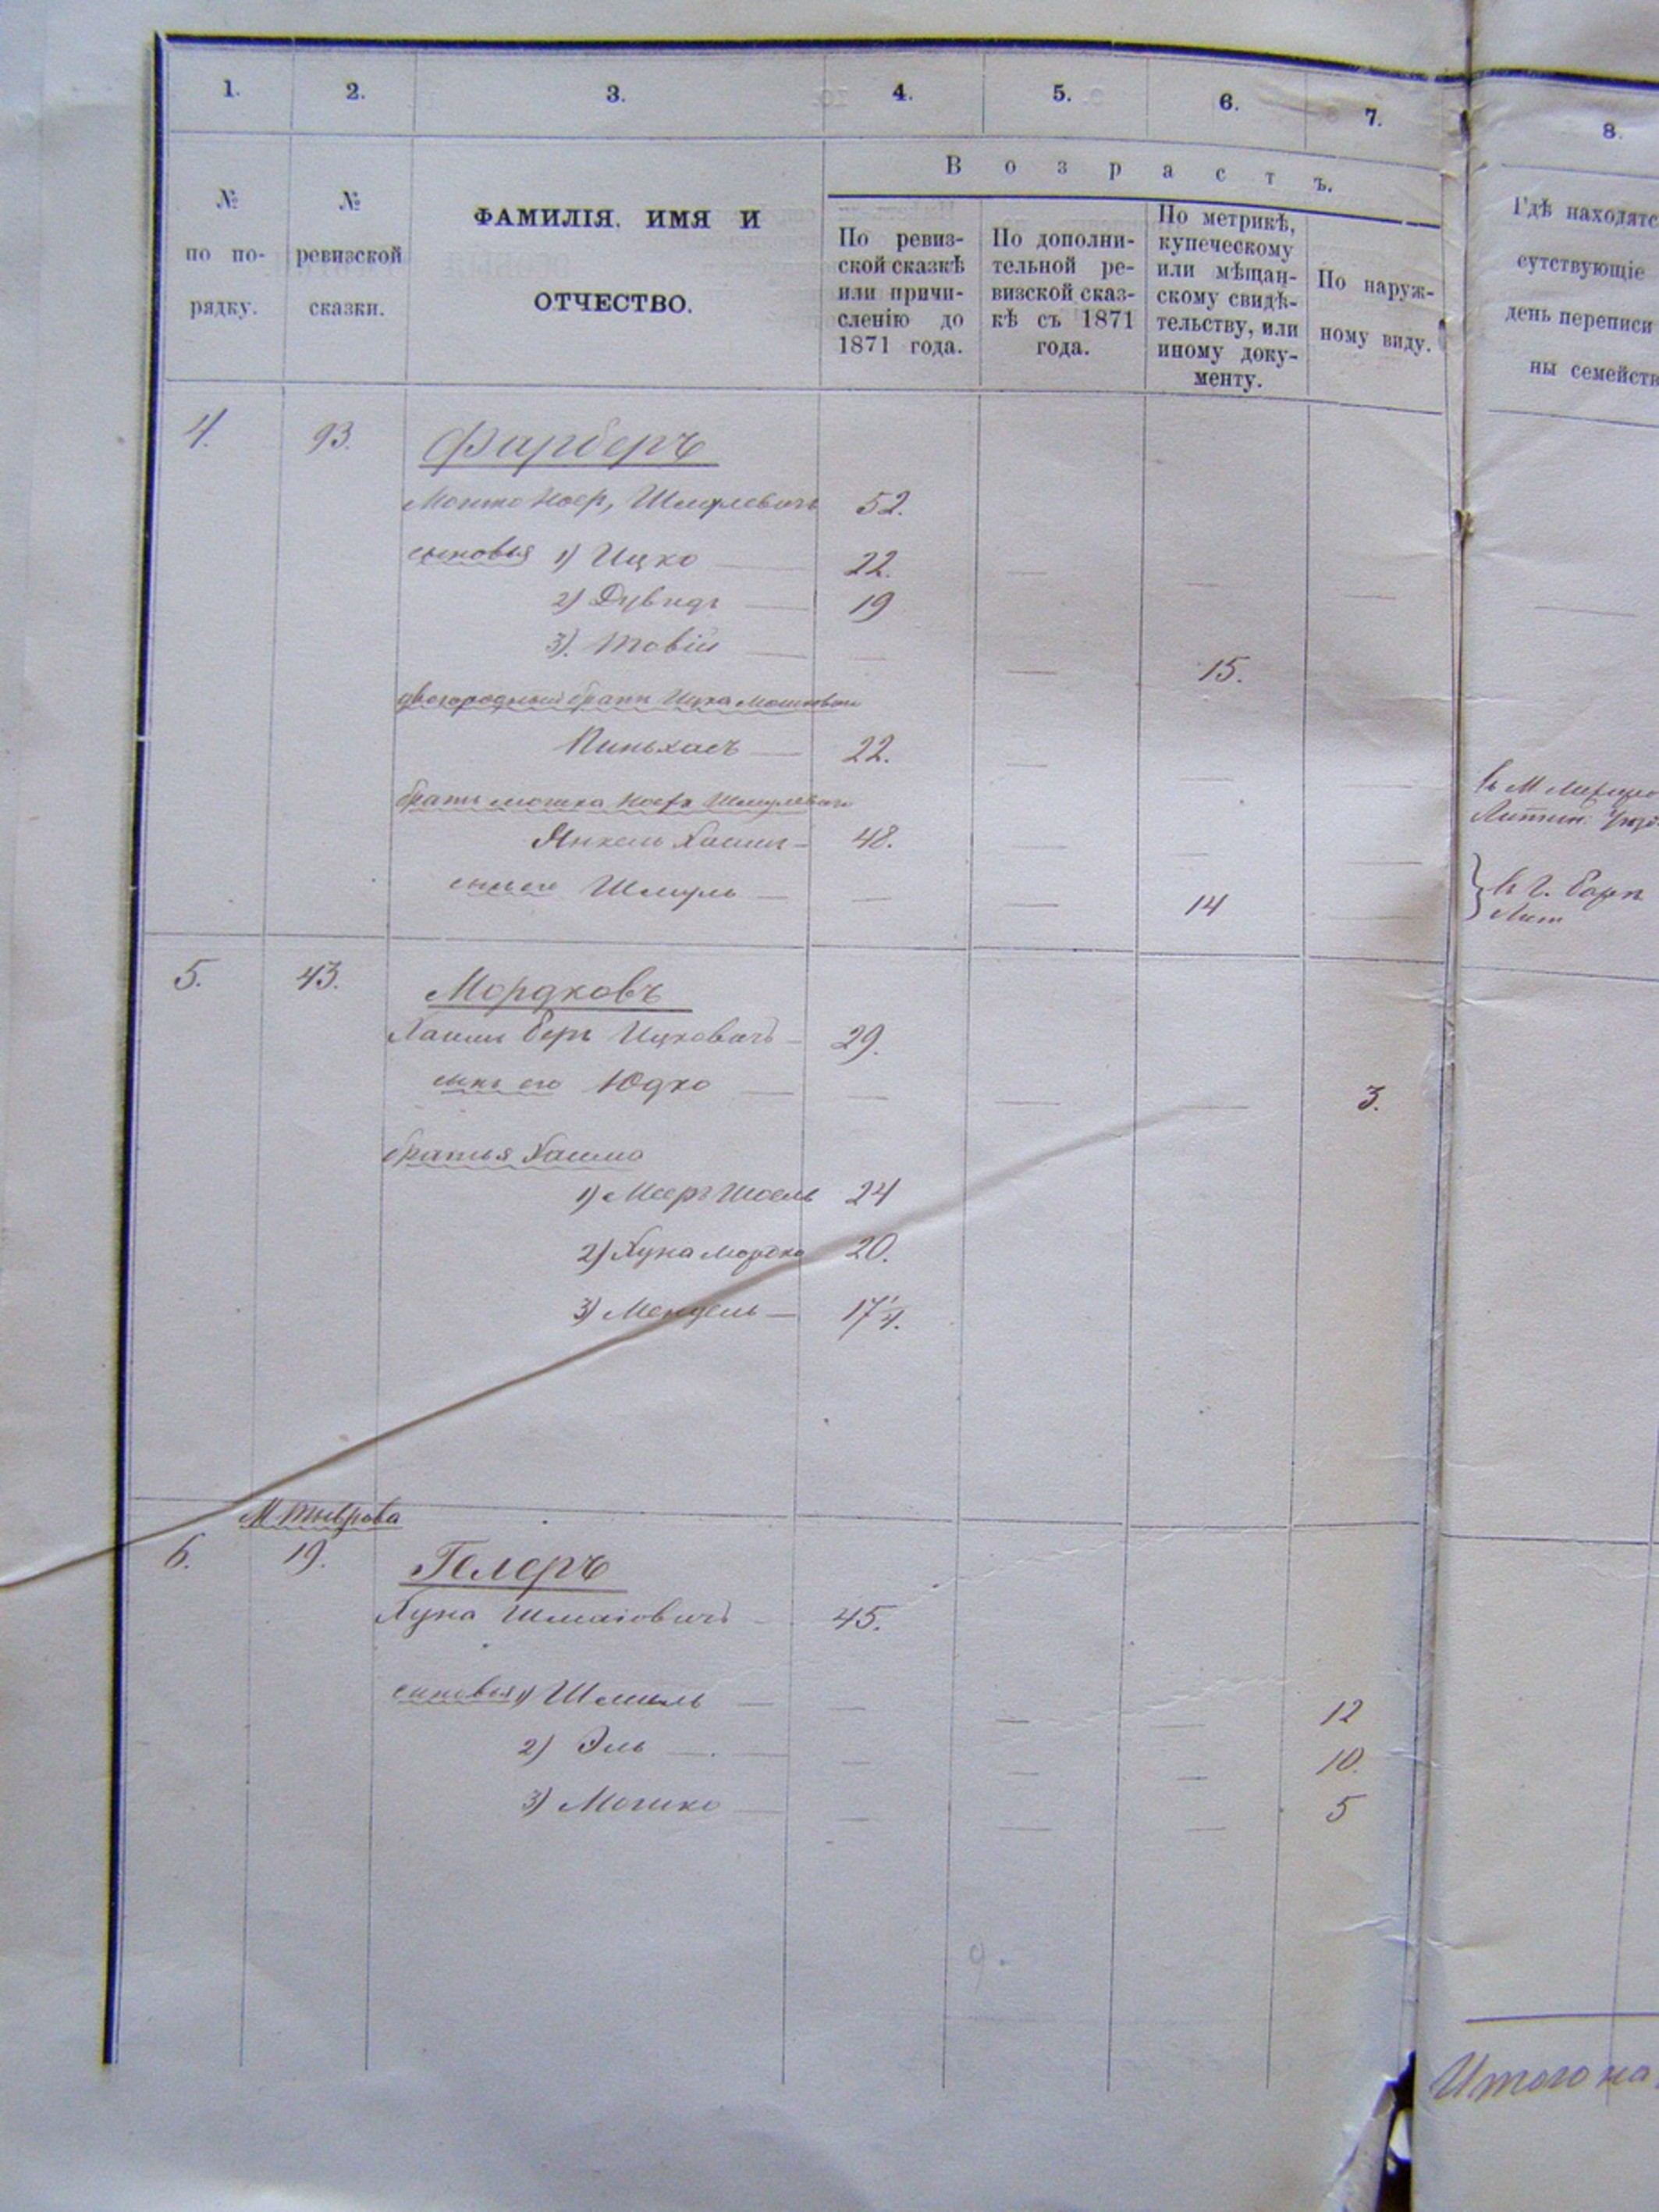 1. 2. 3. 4. 5. 6. 7. 8.
Возрастъ.
№ по по-рядку.
№ ревизской сказки.
ФАМИЛІЯ, ИМЯ И
ОТЧЕСТВО.
По ревиз-
ской сказкѣ
или причи-
сленію до
1871 года.
По дополни-
тельной ре-
визской сказ-
кѣ съ 1871
года.
По метрикѣ,
купеческому
или мѣщан-
скому свидѣ-
тельству, или
иному доку-
менту.
По наруж-
ному виду.
Гдѣ находятс
сутствующіе
день переписи
ны семейств
4. 93. Фарберъ
Мошко Шмулевичъ 52.
сыновья 1) Ицко 22.
2) Дувидъ 19
3). Товій 15.
двоюродный братъ Ицка Мошковича
Пиньхасъ 22.
братъ Мошка Шмулевича
Янкель Хаимъ 48.
сынъ его Шмуль 14
5. 43. Мордковъ
Хаимъ Беръ Ицковичъ 29.
сынъ его Юдко 3.
братья Хаима
1) Мееръ Шоель 24
2) Хуна Мордко 20.
3) Мендель 17 1/4.
М. Тыврова
6. 19. Гелеръ
Хуна Шмаіовичъ 45.
сыновья 1) Шмиль 12
2) Эль 10.
3) Мошко 5
9.
Итого на